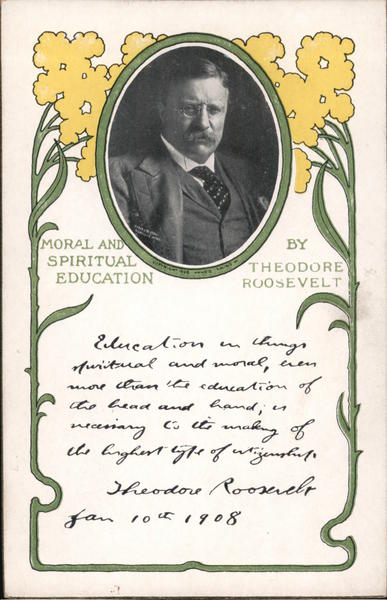 MORAL AND
SPIRITUAL
EDUCATION
BY
THEODORE
ROOSEVELT
Education in things
spiritual and moral, even
more than the education of
the head and hand, is
necessary to the making of
the highest type of citizenship.
Theodore Roosevelt
Jan 10th 1908